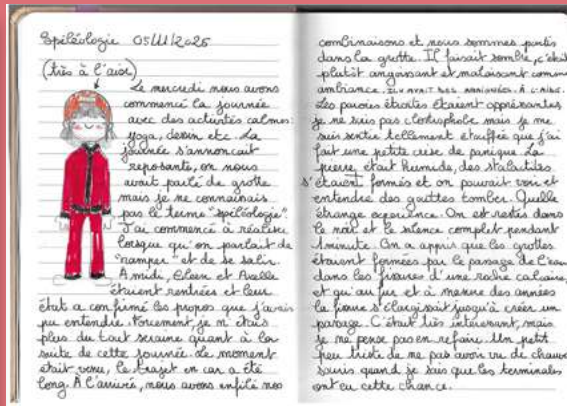 Spéléologie 05/11/2025
(très à l'aise)
Le mercredi nous avons
commencé la journée
avec des activités calmes:
yoga, dessin etc. La
journée s'annonçait
reposante, on nous
avait parlé de grotte
mais je ne connaissais
pas le terme "spéléologie".
J'ai commencé à réaliser
lorsque qu'on parlait de
"ramper" et de se salir.
A midi, Eleen et Axelle
étaient rentrées et leur
état a confirmé les propos que j'avais
pu entendre. Forcément je n'étais
plus du tout sereine quant à la
suite de cette journée. Le moment
était venu, le trajet en car a été
long. À l'arrivée, nous avons enfilé nos
combinaisons et nous sommes partis
dans la grotte. Il faisait sombre, c'était
plutôt angoissant et malaisant comme
ambiance.
Les parois étroites étaient oppressantes
je ne suis pas clostrophobe mais je me
suis sentie tellement étouffée que j'ai
fait une petite crise de panique. La
pierre était humide, des stalactites
s'étaient formés et on pouvait voir et
entendre des gouttes tomber. Quelle
étrange experience. On est restés dans
le noir et le silence complet pendant
1 minute. On a appris que les grottes
étaient formées par le passage de l'eau
dans les fissures d'une roche calcaire,
et qu'au fur et à mesure des années
la fissure s'élargissait jusqu'à créer un
passage. C'était très intéressant, mais
je ne pense pas en refaire. Un petit
peu triste de ne pas avoir vu de chauve
souris quand je sais que les terminales
ont eu cette chance.